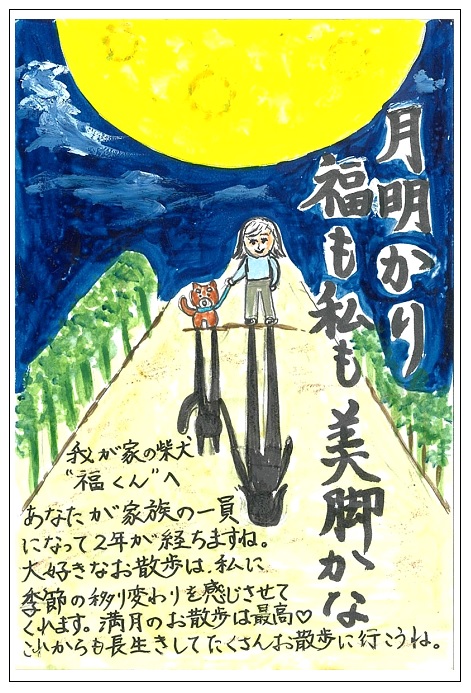 月明かり
福も私も
美脚かな
我が家の柴犬
"福くん"へ
あなたが家族の一員
になって2年が経ちますね。
大好きなお散歩は、私に
季節の移り変わりを感じさせて
くれます。満月のお散歩は最高♡
これからも長生きしてたくさんお散歩に行こうね。